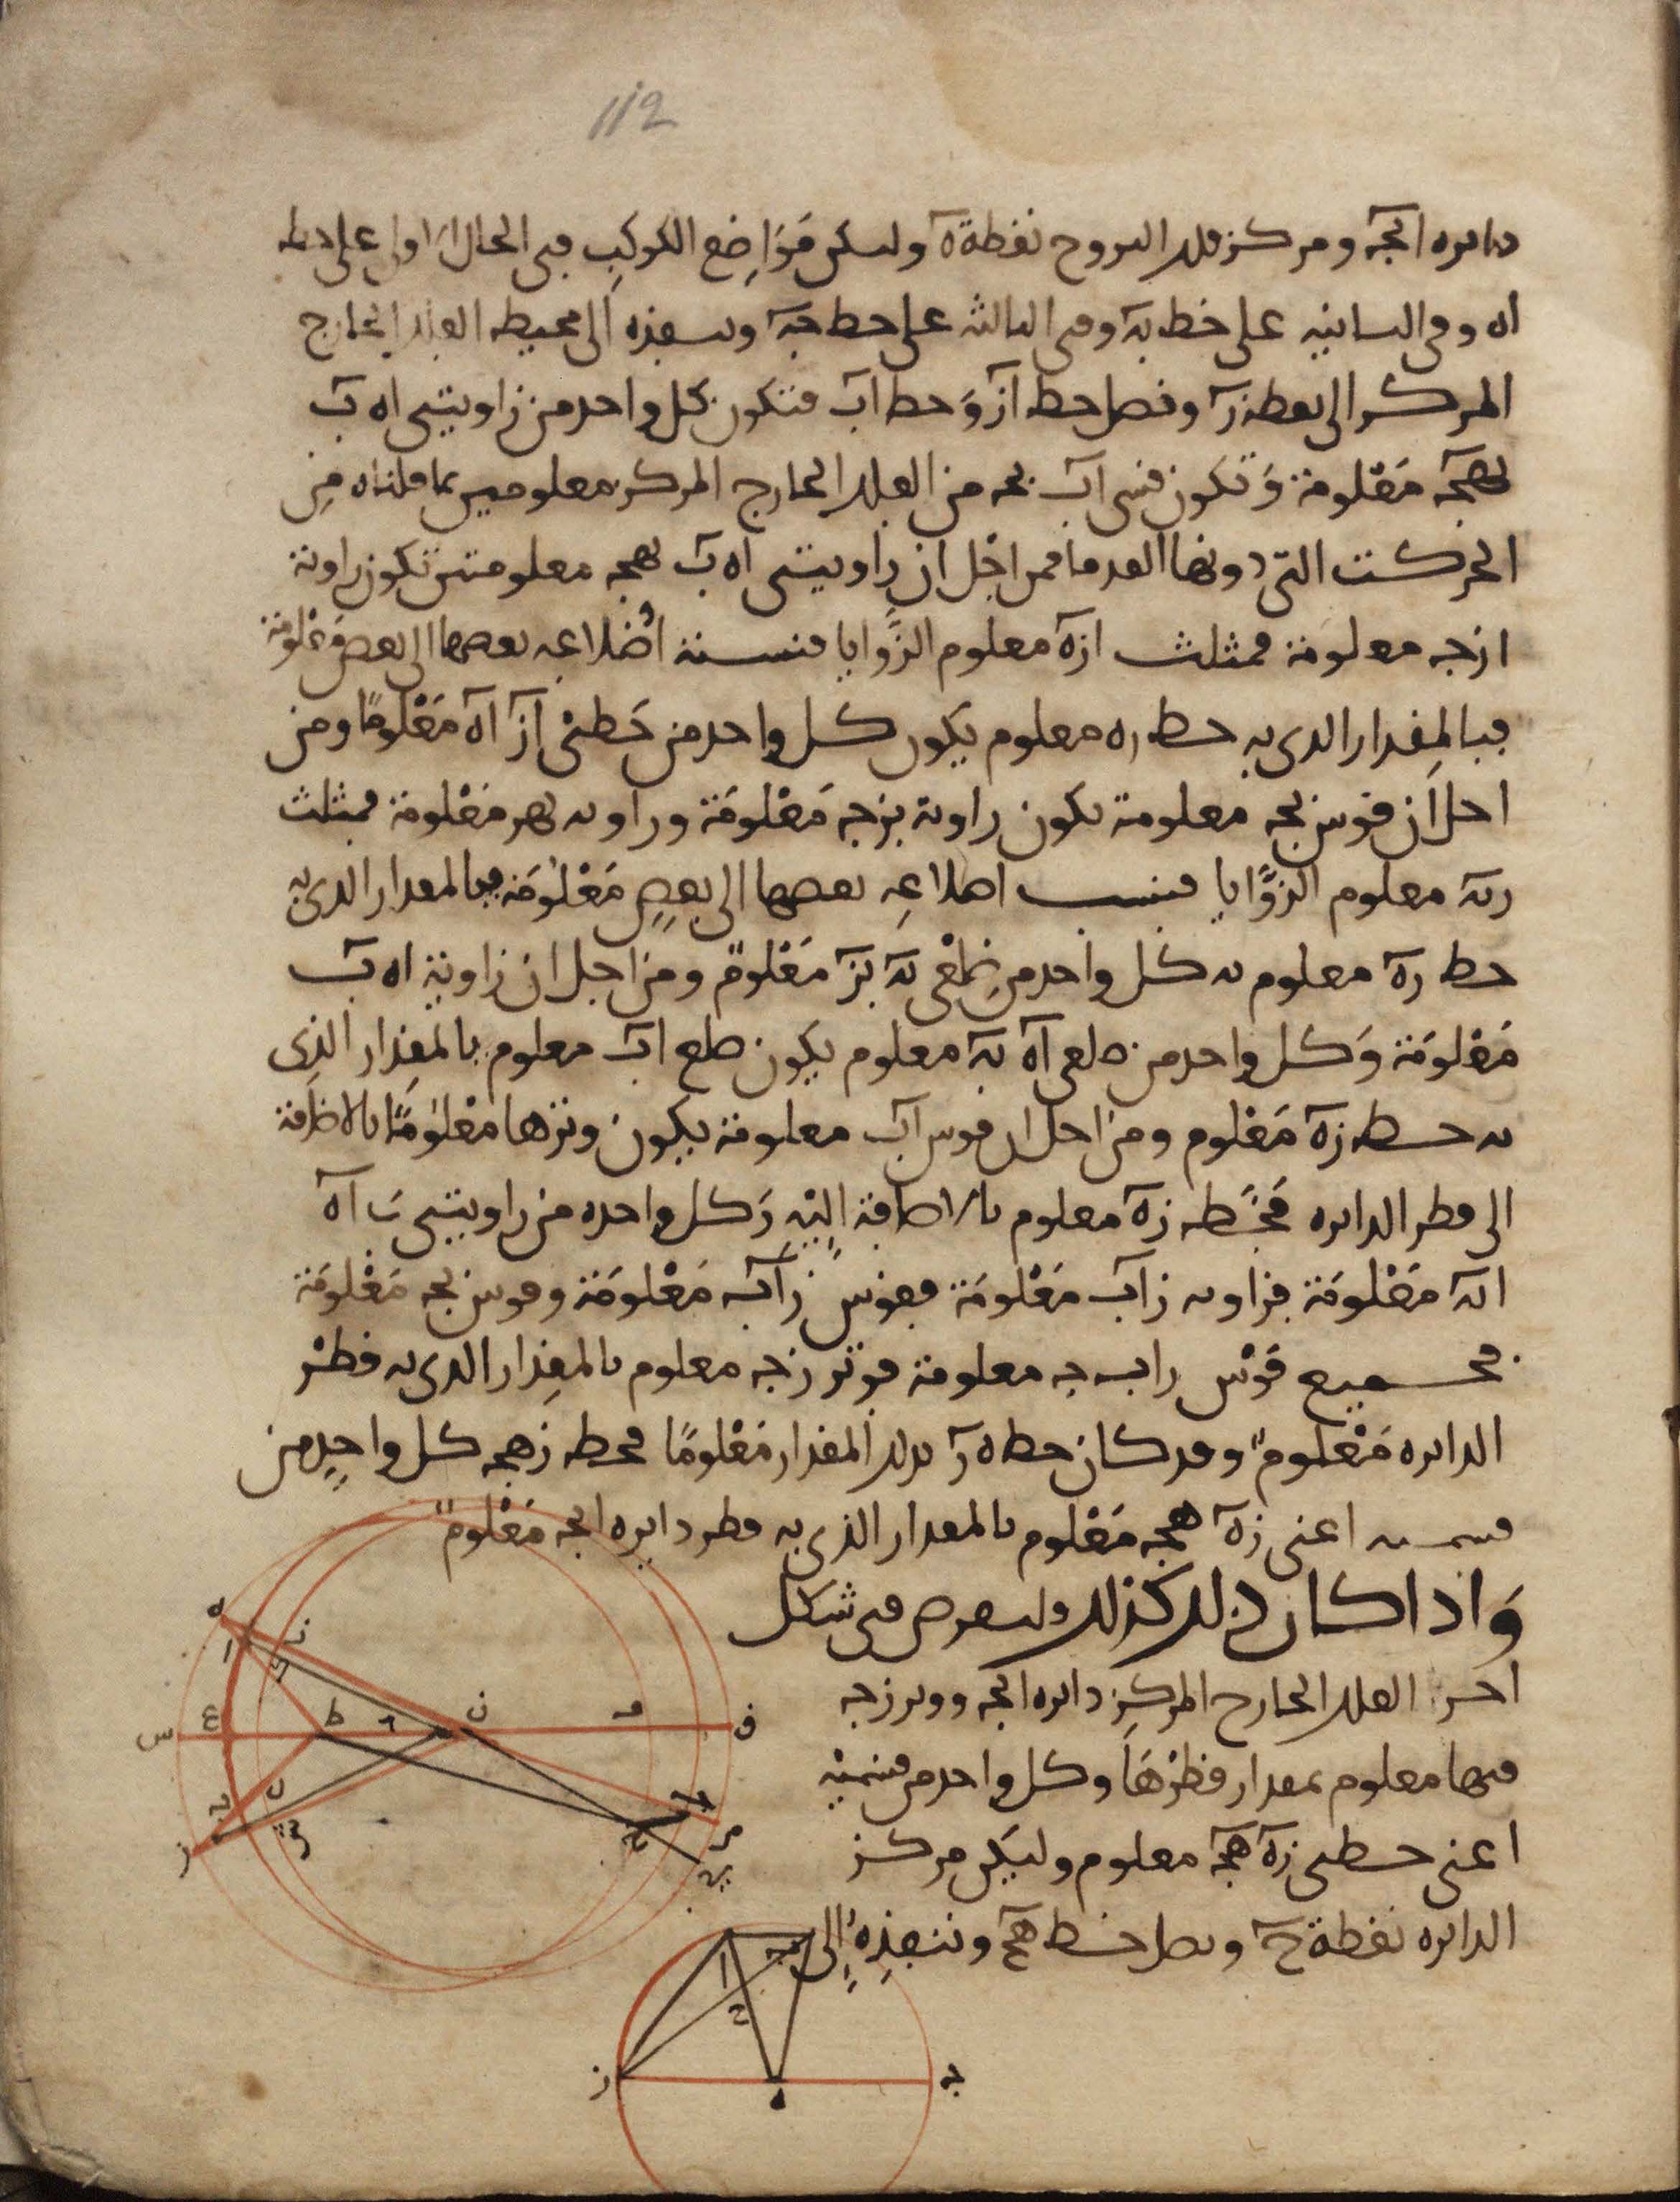 112
دايره ابجه ومركز فلك البروج نقطة ه ولتكن مواضع الكوكب في الحال الاولى على خط
اه وفي الثانيه على خط به وفي الثالثه على خط جه وننفذه الى محيط الفلك الخارج
المركز الى نقطة ز ونصل خط از وخط اب فتكون كل واحد من زاويتي اه ب
بهجه معلومة وتكون قسي اب بجه من الفلك الخارج المركز معلومين بما قلناه من
الحركت التي دونها القدما فمن اجل ان زاويتي اه ب بهجه معلومتين تكون زاوية
ازجه معلومة فمثلث ازه معلوم الزوايا فنسبة اضلاعه بعضها الى بعض معلومة
فبالمقدار الذي به خط زه معلوم يكون كل واحد من خطي از اه معلوما ومن
اجل ان قوس بجه معلومة تكون زاوية بزجه معلومة وزاويه بهز معلومة فمثلث
زبه معلوم الزوايا فنسب اضلاعه بعضها الى بعض معلومة فبالمقدار الذي به
خط زه معلوم به كل واحد من ضلعي به بز معلوم ومن اجل ان زاوية اه ب
معلومة وكل واحد من ضلعي اه به معلوم يكون ضلع اب معلوم بالمقدار الذي
به خط زه معلوم ومن اجل ان قوس اب معلومة يكون وترها معلوما بالاضافة
الى قطر الدايره فخط زه معلوم بالاضافة اليه وكل واحده من زاويتي ب اه
ابه معلومة فزاويه زاب معلومة فقوس زاب معلومة وقوس بجه معلومة
فجميع قوس زاب جه معلومة فوتر زجه معلوم بالمقدار الذي به قطر
الدايره معلوم وقد كان خط ه ز بذلك المقدار معلوما فخط زهجه كل واحد من
قسميه اعني زه هجه معلوم بالمقدار الذي به قطر دايره ابجه معلوم
واذا كان ذلك كذلك ولنفرض في شكل
اخر الفلك الخارج المركز دايره ابجه ووتر زجه
فيها معلوم بمقدار قطرها وكل واحد من قسميه
اعني خطي زه هجه معلوم وليكن مركز
الدايره نقطة ح ونصل خط هح وننفذه الى